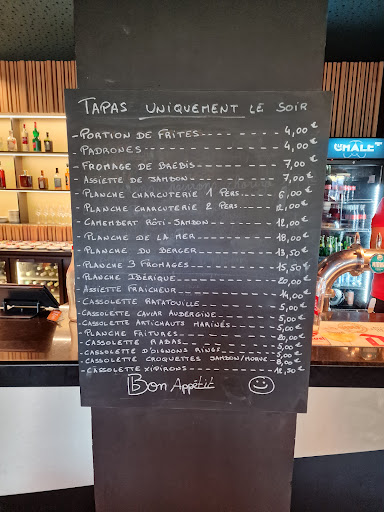 TAPAS UNIQUEMENT LE SOIR
- PORTION DE FRITES --- 4,00€
- PADRONES --- 4,00€
- FROMAGE DE BREBIS --- 7,00€
- ASSIETTE DE JAMBON --- 7,00€
- PLANCHE CHARCUTERIE 1 PERS --- 6,00€
- PLANCHE CHARCUTERIE 2 PERS --- 12,00€
- CAMEMBERT RÔTI-JAMBON --- 12,00€
- PLANCHE DE LA MER --- 18,00€
- PLANCHE DU BERGER --- 13,50€
- PLANCHE 3 FROMAGES --- 15,50€
- PLANCHE IBÉRIQUE --- 20,00€
- ASSIETTE FRAÎCHEUR --- 14,00€
- CASSOLETTE RATATOUILLE --- 5,00€
- CASSOLETTE CAVIAR AUBERGINE --- 5,00€
- CASSOLETTE ARTICHAUTS MARINÉS --- 5,00€
- PLANCHE FRITURES --- 20,00€
- CASSOLETTE RABAS --- 5,00€
- CASSOLETTE D'OIGNONS RINGS --- 5,00€
- CASSOLETTE CROQUETTES JAMBON/MORUE --- 8,00€
- CASSOLETTE XIPIRONS --- 12,50€
BON APPÉTIT